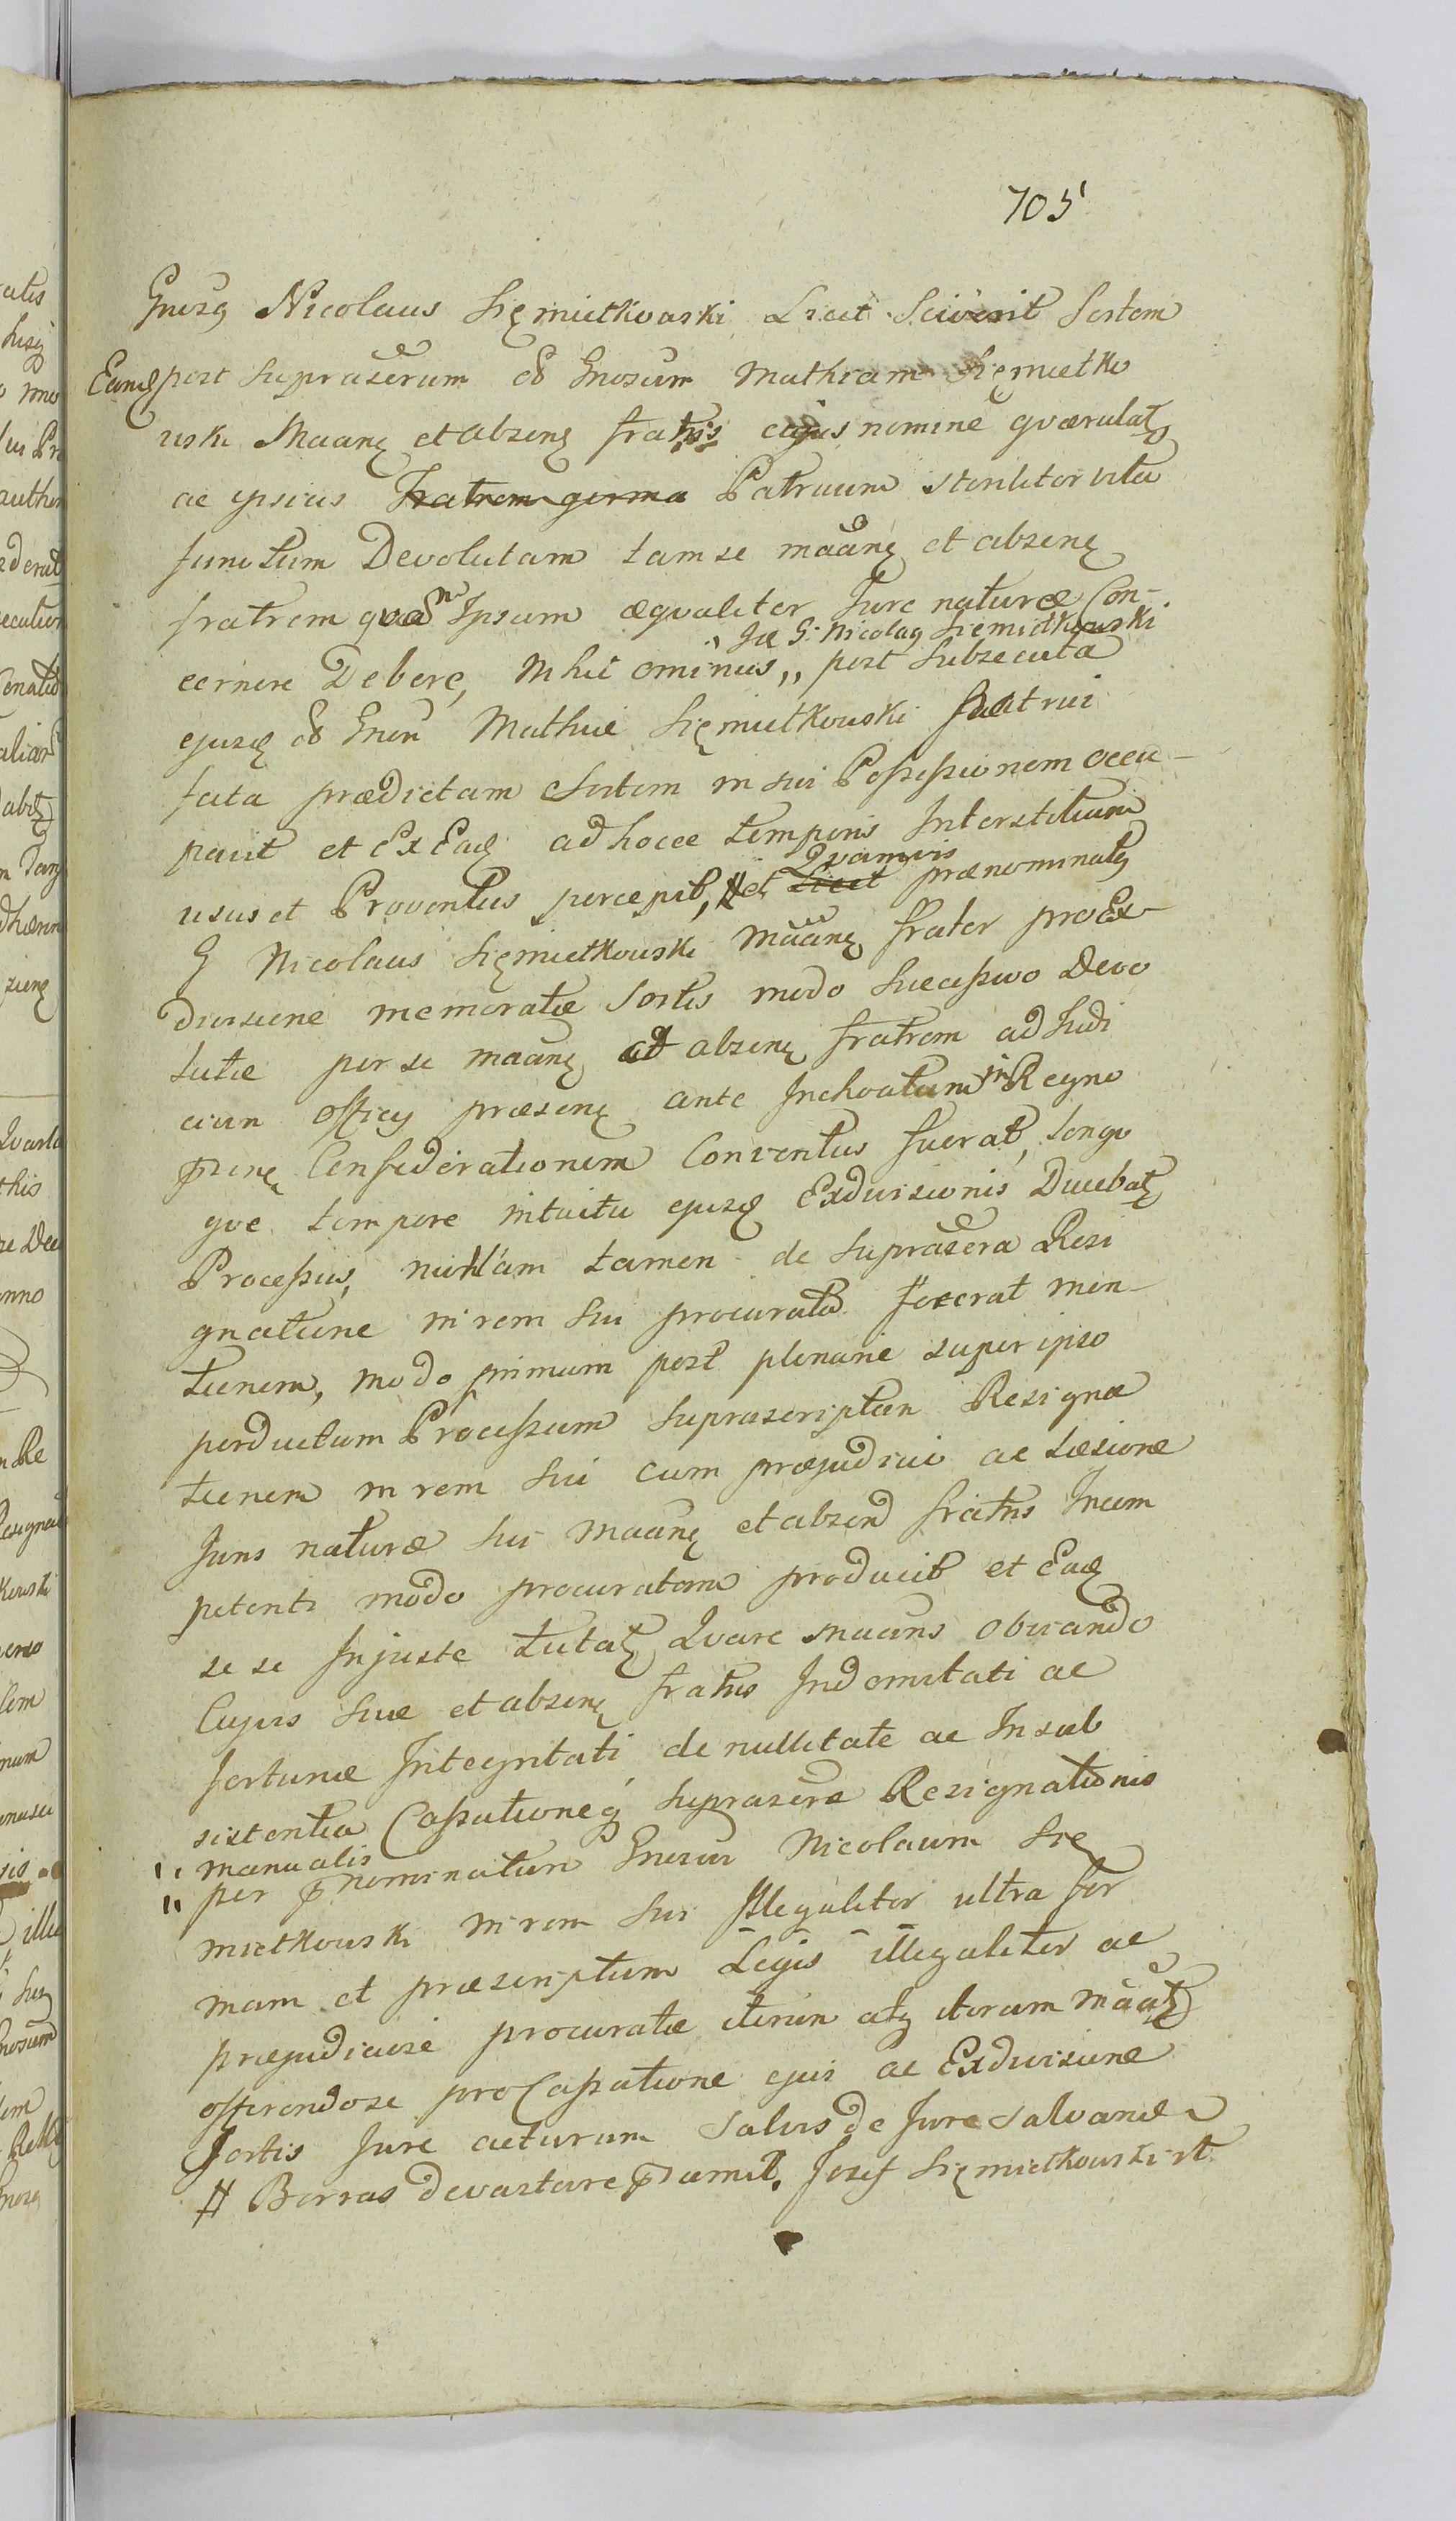 705
Gnosq Nicolaus Sięmietkowski Licet Sciverit Sortem
Eamq post Suprascrum & Gnosum Mathiam Sięmietko
uski Maanę et absenę fratris cujus nomine qværulatę
ac ipsius Fratrem germa Patruum steriliter vita
functum Devolutam tam se maanę et absenę
fratrem qvam Ipsum æqvaliter Jure naturæ Con-
" Ise G. Nicolaq Siemietkowski
cernere Debere, Nihil ominus " post Subsecuta
ejusq & Gnen Mathiæ Sięmietkouski Patrui
fata prædictam Sortem in sui Possessionem occu-
pavit et Ex Eaq ad hocce temporis Interstitium
Qvamvis
usus et Proventus percepit, # et Licet prænominatq
G Nicolaus Sięmietkouski Maanę frater pro Ex-
divisione memoratæ Sortis modo Successivo Devo
lutæ per se maanę et absenę fratrem ad Judi
cium Officij præsenę ante Inchoatam in Regno
prænę Confæderationem Conventus fuerat, longo
qve tempore intuitu ejusq Exdivisionis Ducebatę
Processus, nullam tamen de Suprascra Resi
gnatione in rem sui procurata fecerat men-
tionem, modo primum post plenarie super ipso
perductum Processum Suprascriptam Resigna
tionem in rem Sui cum præjudicio ac Læsione
Juris naturæ Sui Maanę et absen fratris Incom
petenti modo procuratam producit et Eaq
se se Injuste tutatę Qvare Maans Obviando
Cujus Suæ et absenę fratris Indemnitati ac
fortunæ Integritati de nullitate ac Insub
sistentia Cassationeq Suprascræ Resignationis
" manualis
" per pnominatum Gnosum Nicolaum Się
mietkouski in rem Sui Illegaliter ultra for
mam et præscriptum Legis illegaliter ac
præjudiciose procuratæ iterum atq iterum maatę
offerendo se pro Cassatione ejus ac Exdivisione
Sortis Jure acturum Salvis de Jure Salvandis
# Borras devastare præsumit. Josef Sięmietkouski rt